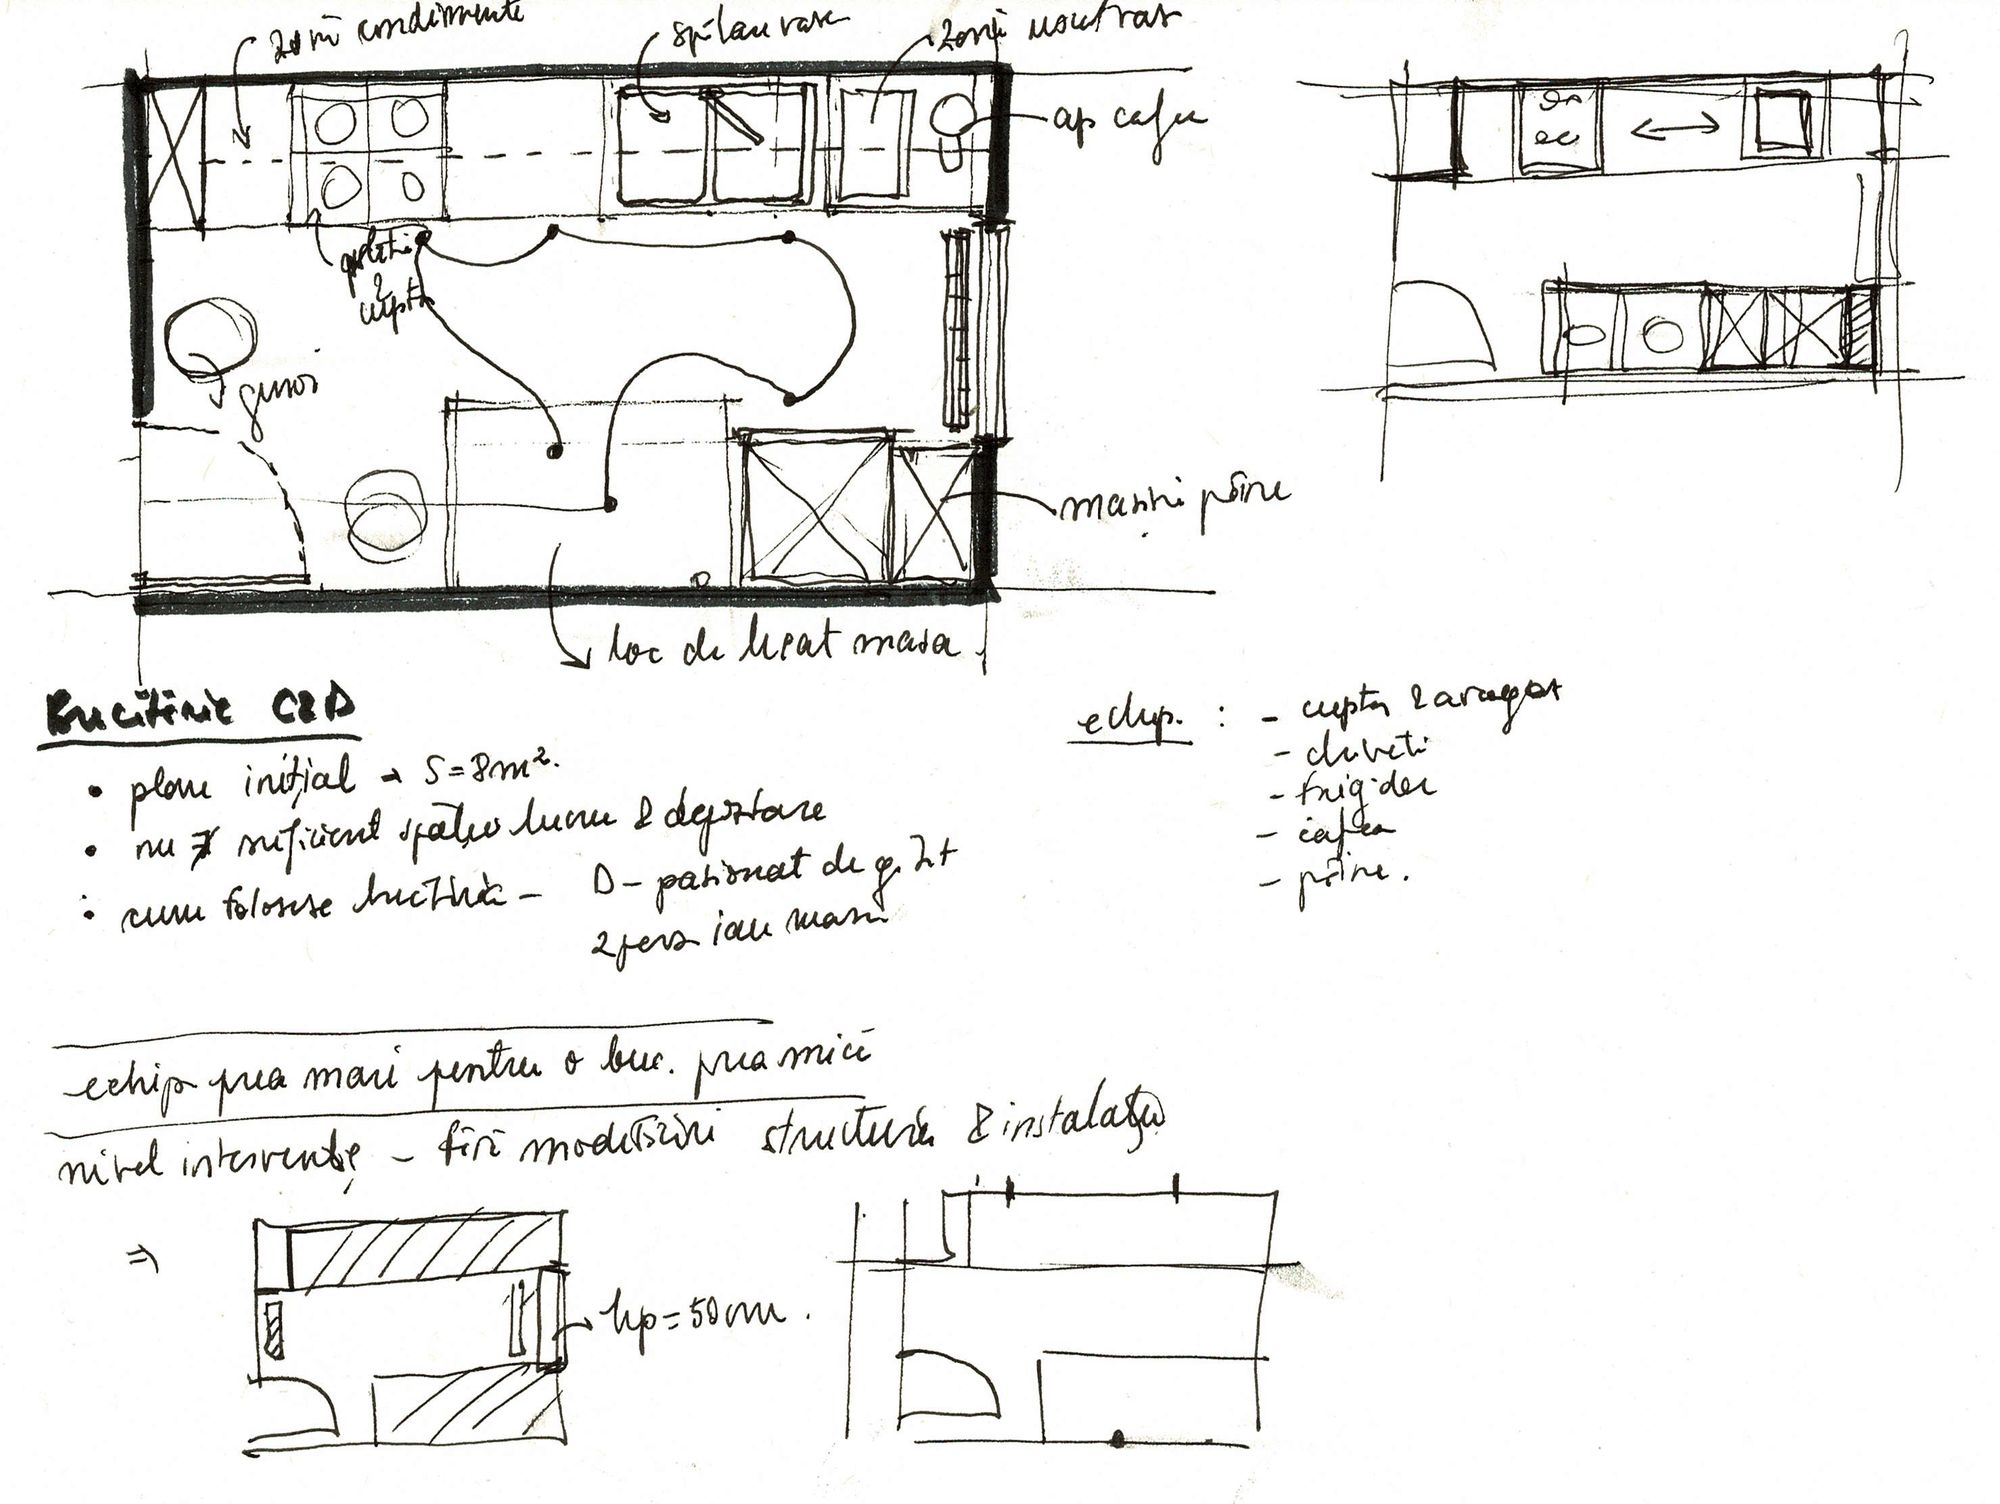 zonă condimente
spălau vase
zonă neutră
ap cafea
&
gunoi
mașină pâine
loc de luat masa
Bucătărie C&D
• plan inițial → S=8m².
• nu ∃ suficient spațiu lucru & depozitare
• cum folosesc bucătăria - D - pasionat de gătit
2 pers iau masa
echip. : - cuptor & aragaz
- chiuvetă
- frigider
- cafea
- pâine.
echip prea mari pentru o buc. prea mică
nivel intervenție - fără modificări structură & instalații
⇒
hp=50cm.